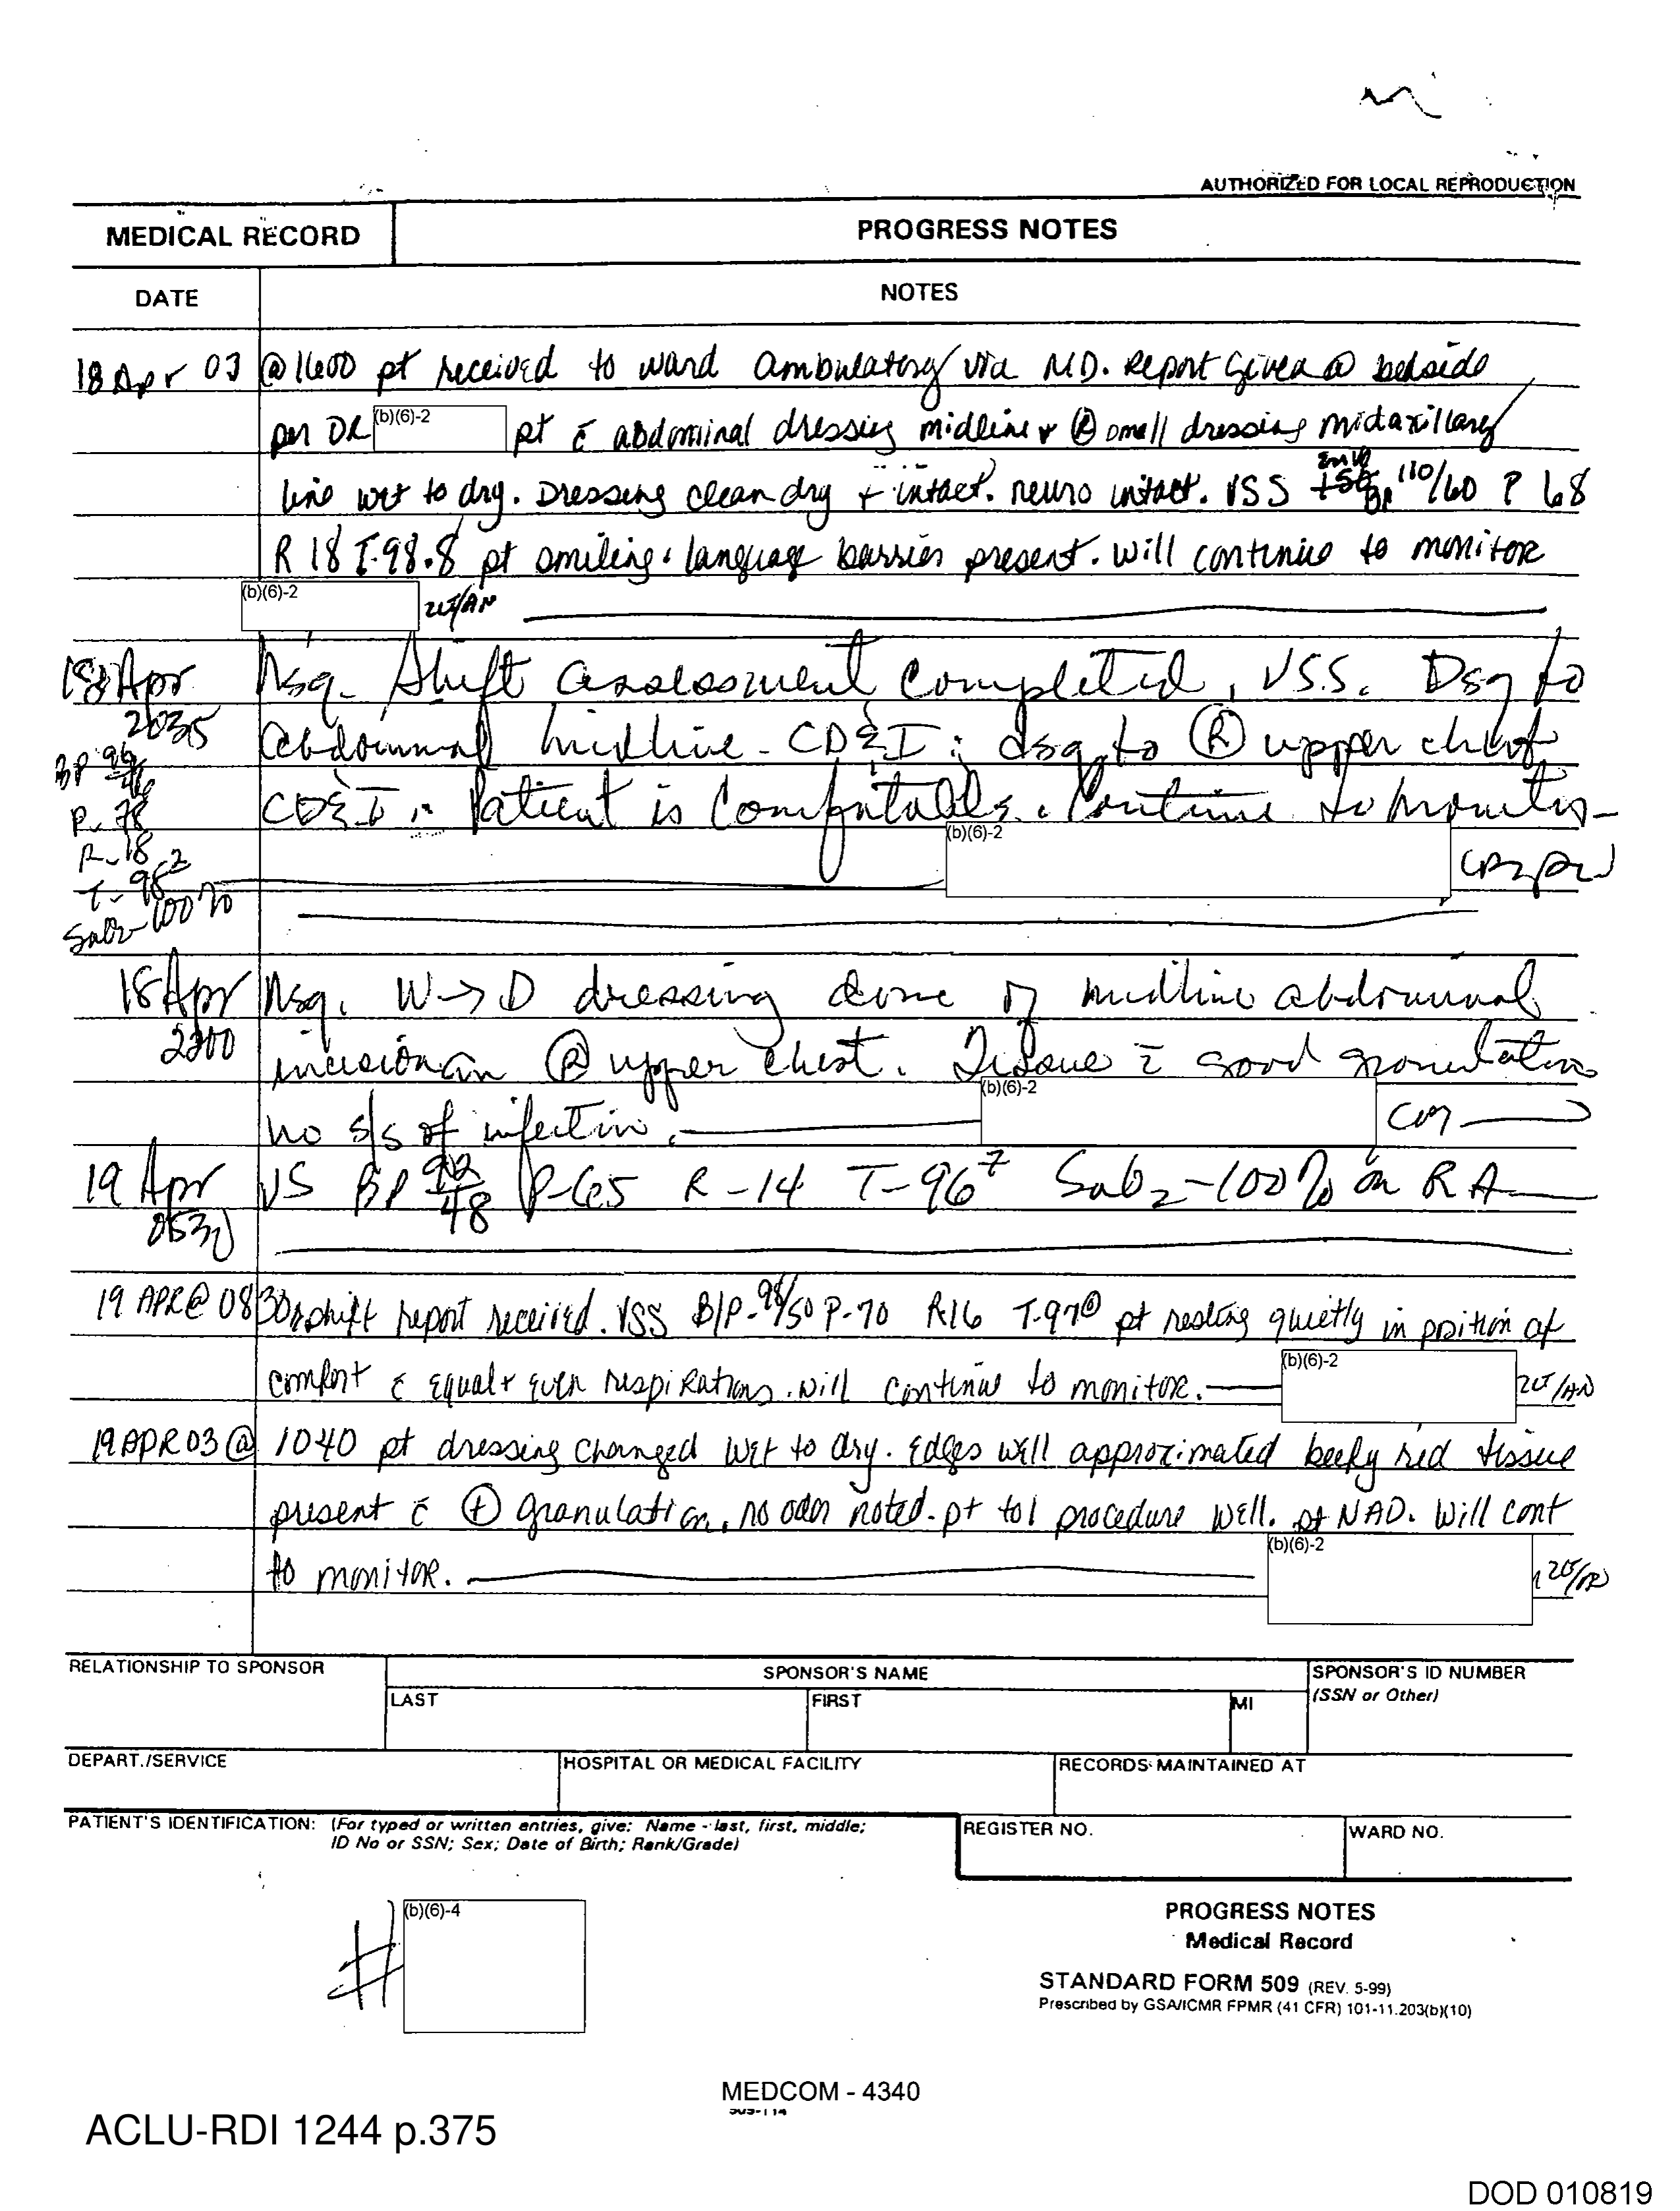 AUTHORIZED FOR LOCAL REPRODUCTION
MEDICAL RECORD
PROGRESS NOTES
DATE
NOTES
18 Apr 03 @1600 pt received to ward ambulatory via MD. Report given @ bedside
per DR (b)(6)-2 pt c̄ abdominal dressing midline + Ⓡ small dressing midaxillary
line wet to dry. Dressing clean dry + intact. neuro intact. VSS BP 110/60 P 68
R 18 T-98.8 pt smiling. language barrier present. Will continue to monitor
(b)(6)-2 2LT/AN
18 Apr Nsg. Shift assessment completed, VSS. Dsg to
2035 abdominal midline - CD&I; dsg to Ⓡ upper chest
BP 99/46
P-78 CD&I. Patient is comfortable. Continue to monitor
R-18
(b)(6)-2
T-98²
SaO2-100%
18 Apr Nsg. W→D dressing done of midline abdominal
2200 incision Ⓡ upper chest. Tissue c̄ good granulation
no s/s of infection. (b)(6)-2
19 Apr VS BP 92/48 P-65 R-14 T-96⁷ SaO2-100% on RA
0530
19 APR@ 0830 shift report received. VSS B/P-98/50 P-70 R16 T-97⁰ pt resting quietly in position of
comfort c̄ equal + even respirations. will continue to monitor. (b)(6)-2 2LT/AN
19 APR 03 @ 1040 pt dressing changed wet to dry. Edges well approximated beefy red tissue
present c̄ ⊕ granulation, no odor noted. pt tol procedure well. pt NAD. Will cont
to monitor. (b)(6)-2 2LT/AN
RELATIONSHIP TO SPONSOR
SPONSOR'S NAME
SPONSOR'S ID NUMBER
(SSN or Other)
LAST
FIRST
MI
DEPART./SERVICE
HOSPITAL OR MEDICAL FACILITY
RECORDS MAINTAINED AT
PATIENT'S IDENTIFICATION: (For typed or written entries, give: Name - last, first, middle;
ID No or SSN; Sex; Date of Birth; Rank/Grade)
REGISTER NO.
WARD NO.
# (b)(6)-4
PROGRESS NOTES
Medical Record
STANDARD FORM 509 (REV. 5-99)
Prescribed by GSA/ICMR FPMR (41 CFR) 101-11.203(b)(10)
MEDCOM - 4340
ACLU-RDI 1244 p.375
DOD 010819